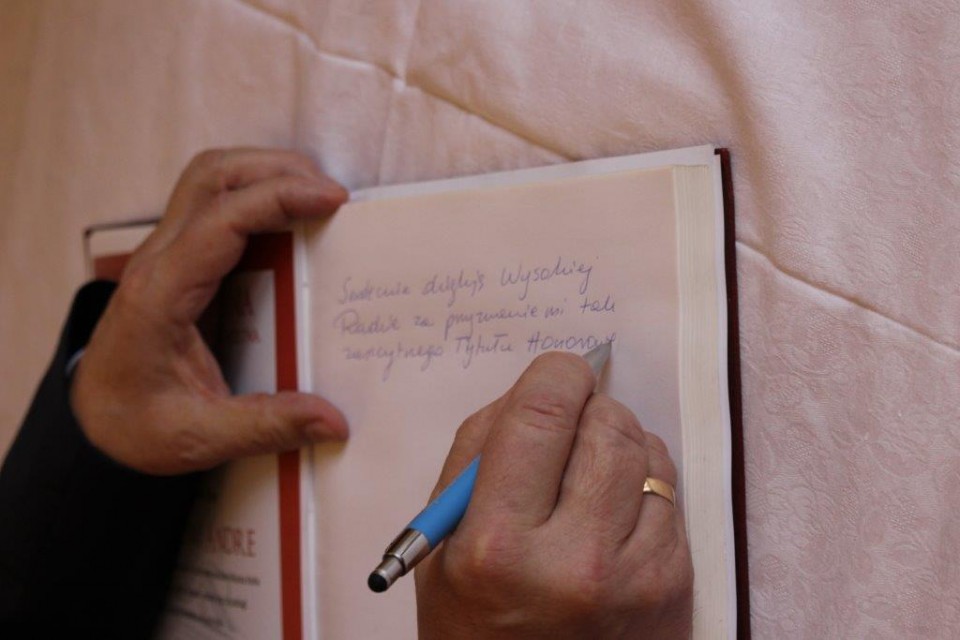 Serdecznie dziękuję Wysokiej
Radzie za przyznanie mi tak
zaszczytnego Tytułu Honorowe
ANDRE